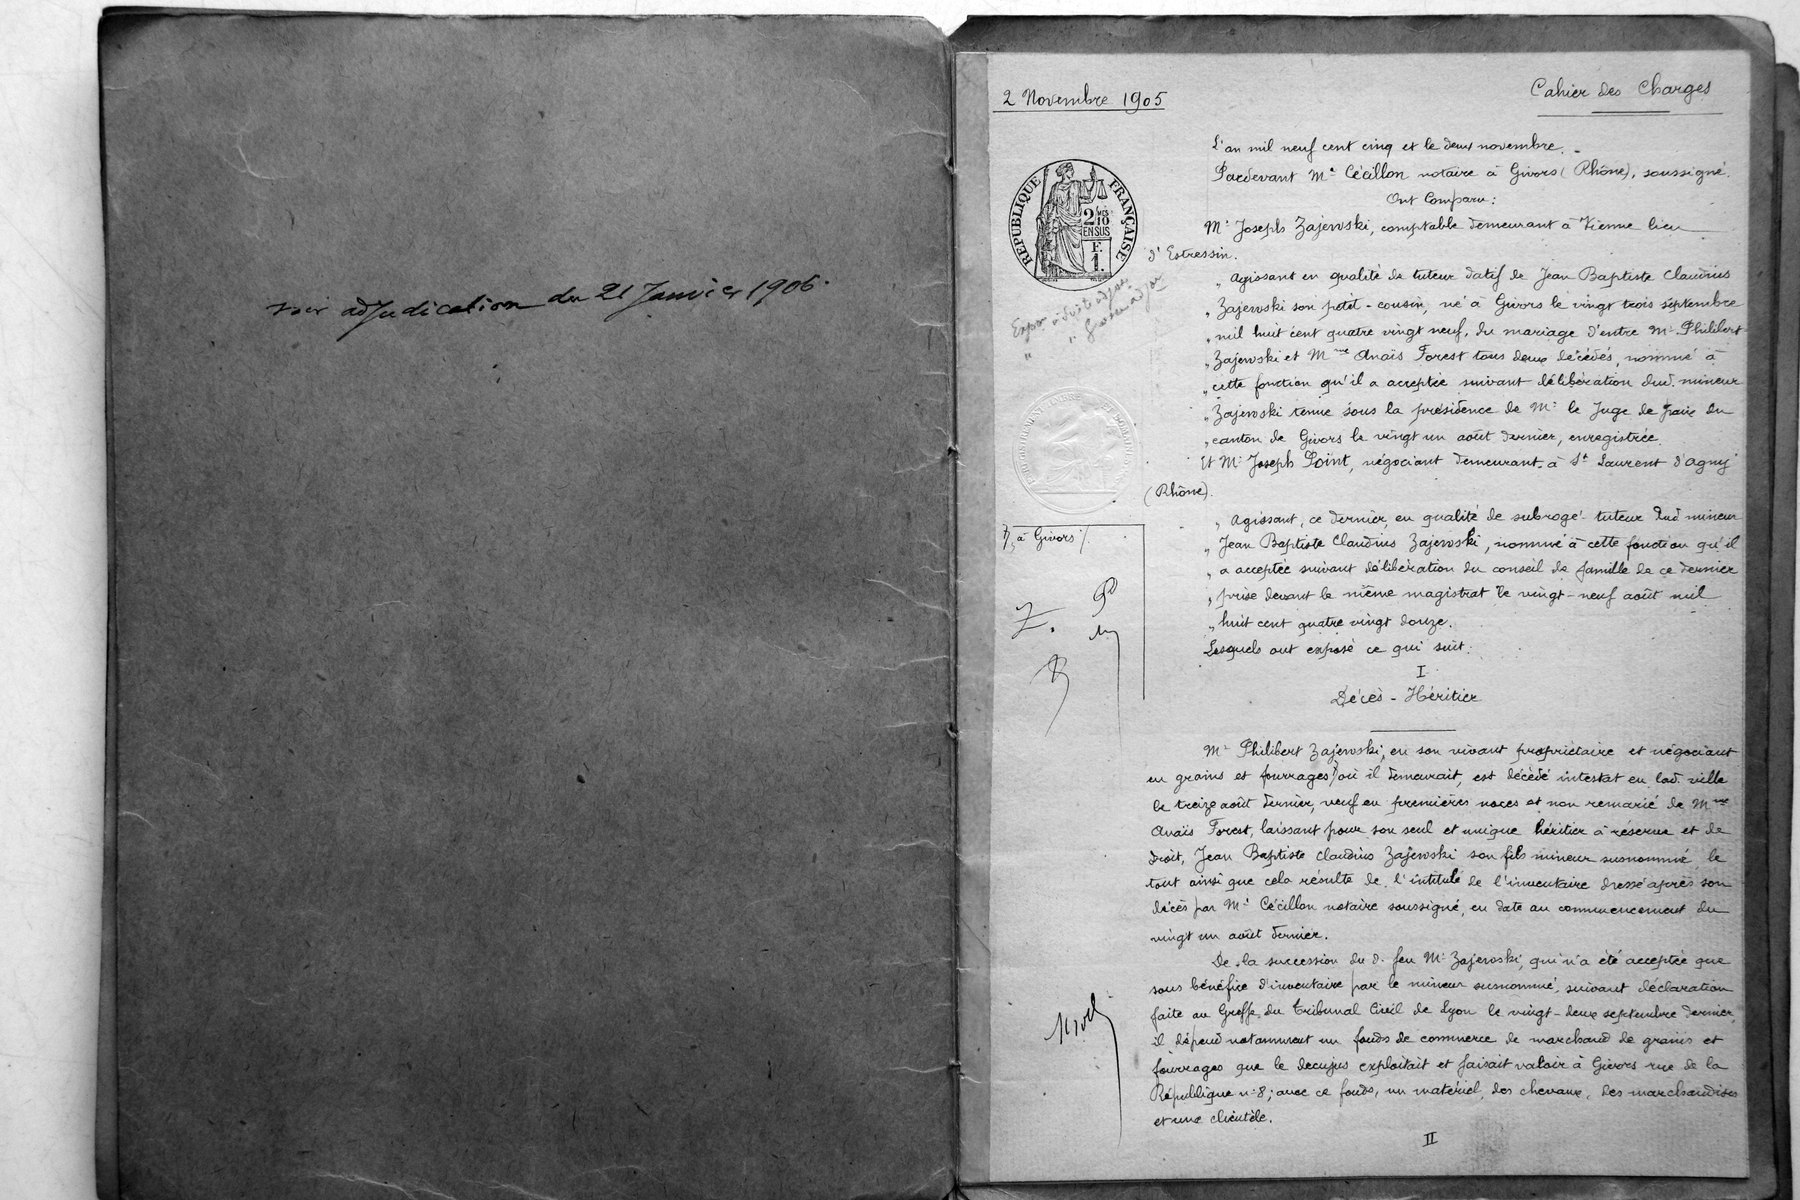 voir adjudication du 21 Janvier 1906.
2 Novembre 1905
Cahier des Charges
RÉPUBLIQUE FRANÇAISE
2/10
EN SUS
F.
1.
L'an mil neuf cent cinq et le deux novembre.
Pardevant Me Cécillon notaire à Givors (Rhône), soussigné.
Ont Comparu:
Mr Joseph Zajewski, comptable demeurant à Vienne lieu
d'Estressin.
„ Agissant en qualité de tuteur datif de Jean Baptiste Claudius
„ Zajewski son petit-cousin, né à Givors le vingt trois septembre
„ mil huit cent quatre vingt neuf, du mariage d'entre Mr Philibert
„ Zajewski et Mme Anaïs Forest tous deux décédés, nommé à
„ cette fonction qu'il a acceptée suivant délibération dud. mineur
„ Zajewski tenue sous la présidence de Mr le Juge de paix du
„ canton de Givors le vingt un août dernier, enregistrée.
Et Mr Joseph Point, négociant demeurant à St Laurent d'Agny
(Rhône).
„ Agissant, ce dernier, en qualité de subrogé-tuteur dud mineur
„ Jean Baptiste Claudius Zajewski, nommé à cette fonction qu'il
„ a acceptée suivant délibération du conseil de famille de ce dernier
„ prise devant le même magistrat le vingt-neuf août mil
„ huit cent quatre vingt douze.
Lesquels ont exposé ce qui suit:
I
Décès - Héritier
, à Givors /.
Z.
P
Mr Philibert Zajewski, en son vivant propriétaire et négociant
en grains et fourrages où il demeurait, est décédé intestat en lad. ville
le treize août dernier, veuf en premières noces et non remarié de Mme
Anaïs Forest, laissant pour son seul et unique héritier à réserve et de
droit, Jean Baptiste Claudius Zajewski son fils mineur susnommé le
tout ainsi que cela résulte de l'intitulé de l'inventaire dressé après son
décès par Me Cécillon notaire soussigné, en date au commencement du
vingt un août dernier.
De la succession du d. feu Mr Zajewski, qui n'a été acceptée que
sous bénéfice d'inventaire par le mineur susnommé, suivant déclaration
faite au Greffe du Tribunal Civil de Lyon le vingt-deux septembre dernier,
il dépend notamment un fonds de commerce de marchand de grains et
fourrages que le decujus exploitait et faisait valoir à Givors rue de la
République n° 8; avec ce fonds, un matériel, des chevaux, des marchandises
et une clientèle.
II